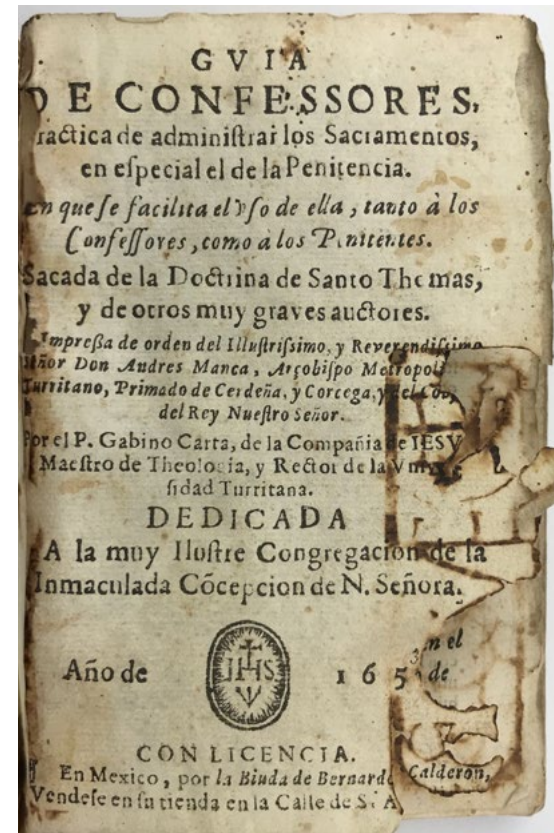 GVIA
DE CONFESSORES,
ractica de administrar los Sacramentos,
en especial el de la Penitencia.
En que se facilita el vso de ella, tanto à los
Confessores, como à los Penitentes.
Sacada de la Doctrina de Santo Thomas,
y de otros muy graves auctores.
Impressa de orden del Illustrissimo, y Reverendissimo
Señor Don Andres Manca, Arçobispo Metropoli
Turritano, Primado de Cerdeña, y Corcega, y del
del Rey Nuestro Señor.
Por el P. Gabino Carta, de la Compañia de IESV
Maestro de Theologia, y Rector de la Vni
sidad Turritana.
DEDICADA
A la muy Ilustre Congregacion de la
Inmaculada Cõcepcion de N. Señora.
en el
Año de IHS 165 de
CON LICENCIA.
En Mexico, por la Biuda de Bernardo Calderon,
Vendese en su tienda en la Calle de S. A